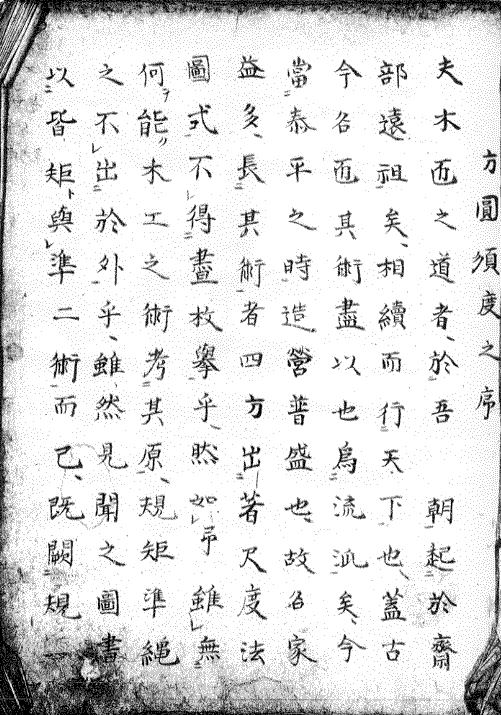 方圓須度之序
夫木匠之道者、於吾　朝起於齋
部遠祖矣、相續而行天下也、蓋古
今名匠其術盡以也爲流派矣、今
當泰平之時造營普盛也、故名家
益多、長其術者四方出著尺度法
圖式不得盡枚擧乎、然如吊雖無
何能木工之術考其原、規矩準縄
之不出於外乎、雖然見聞之圖書
以皆矩與準二術而已、既闕規